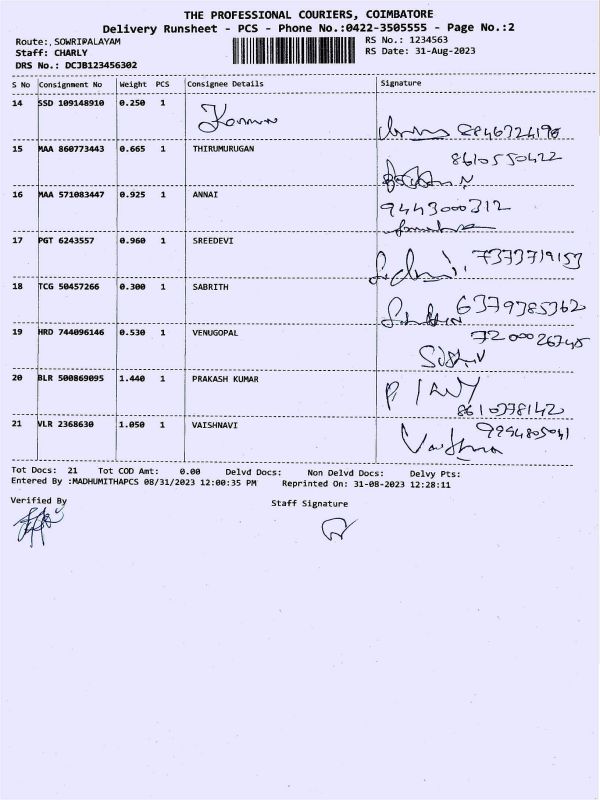 THE PROFESSIONAL COURIERS, COIMBATORE
Delivery Runsheet - PCS - Phone No.:0422-3505555 - Page No.:2
Route:, SOWRIPALAYAM
RS No.: 1234563
Staff: CHARLY
RS Date: 31-Aug-2023
DRS No.: DCJB123456302
S No Consignment No Weight PCS Consignee Details Signature
14 SSD 109148910 0.250 1
15 MAA 860773443 0.665 1 THIRUMURUGAN 8610550422
16 MAA 571083447 0.925 1 ANNAI 9443000312
17 PGT 6243557 0.960 1 SREEDEVI 7373719153
18 TCG 50457266 0.300 1 SABRITH 6379785362
19 HRD 744096146 0.530 1 VENUGOPAL
20 BLR 500869095 1.440 1 PRAKASH KUMAR
21 VLR 2368630 1.050 1 VAISHNAVI
Tot Docs: 21 Tot COD Amt: 0.00 Delvd Docs: Non Delvd Docs: Delvy Pts:
Entered By :MADHUMITHAPCS 08/31/2023 12:00:35 PM Reprinted On: 31-08-2023 12:28:11
Verified By
Staff Signature